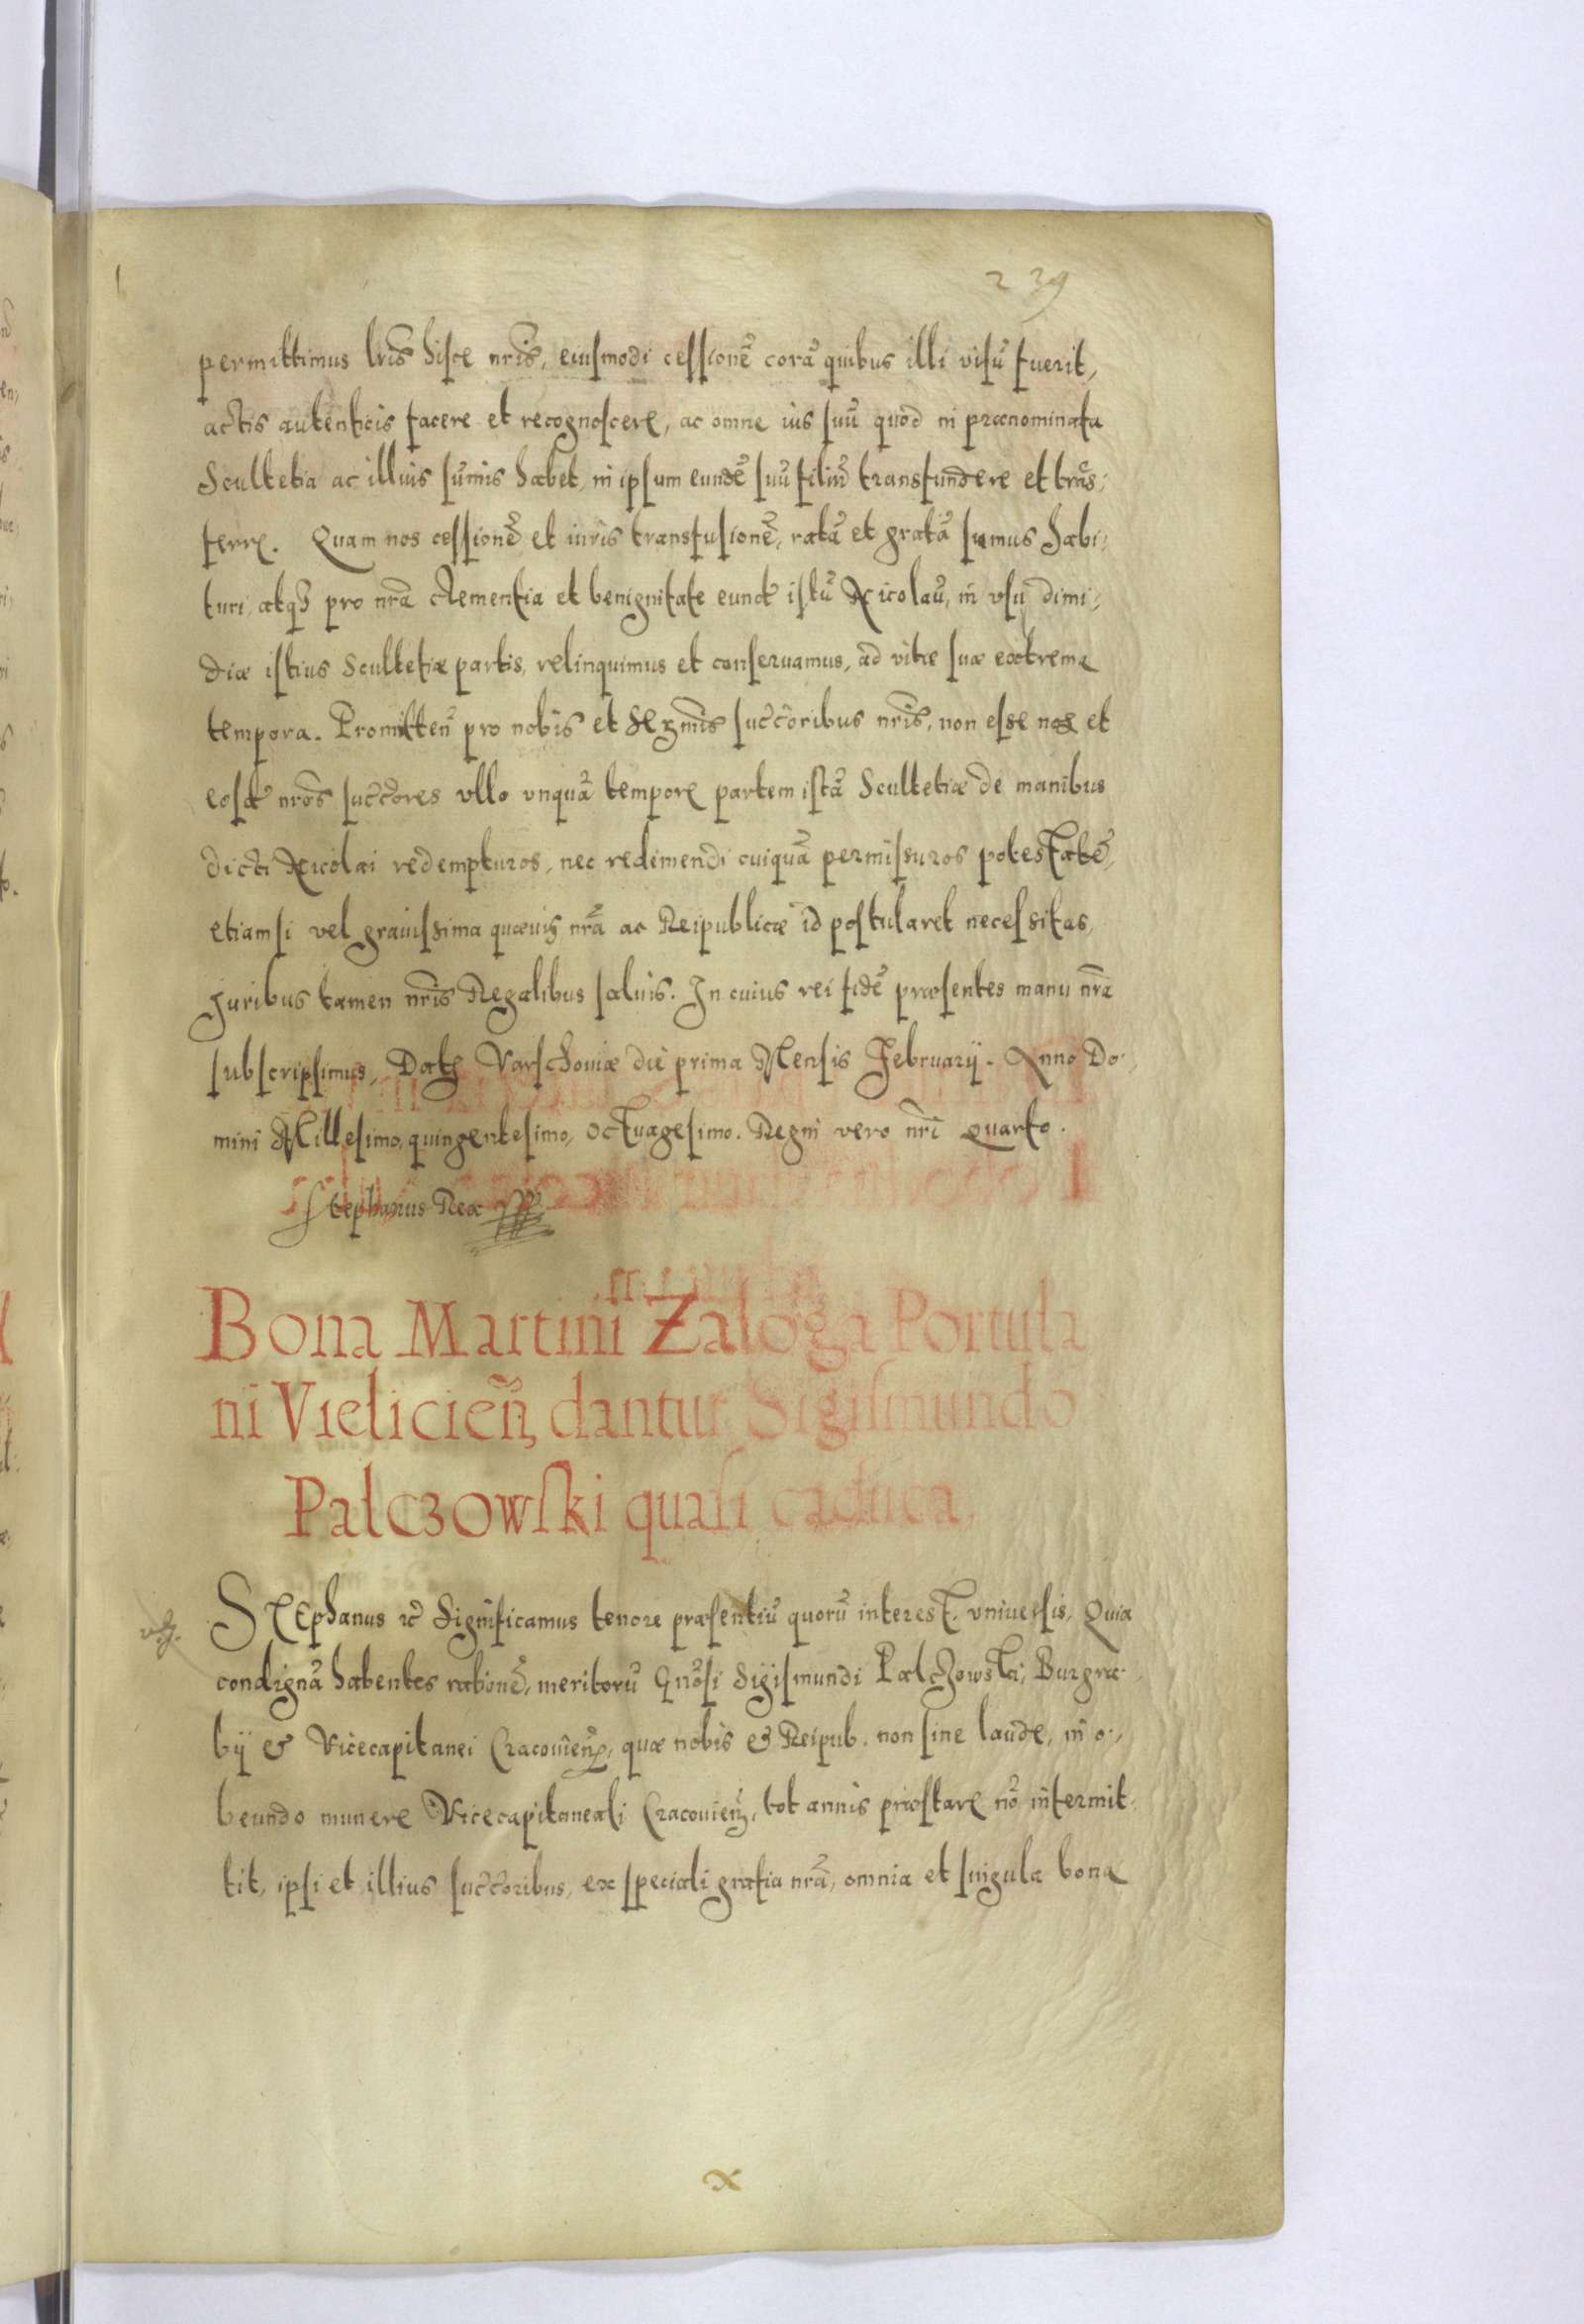 239
permittimus lr̃is hisce nr̃is, eiusmodi cessionẽ corã quibus illi visũ fuerit,
actis autenticis facere et recognoscere, ac omne ius suũ quod in prænominata
Scultetia ac illius sumis habet, in ipsum eundẽ suũ filiũ transfundere et trãs:
ferre. Quam nos cessionẽ et iuris transfusionẽ, ratã et gratã sumus habi:
turi, atqꝫ pro nrã clementia et benignitate eund istũ Nicolaũ, in vsu dimi:
diæ istius Scultetiæ partis, relinquimus et conseruamus, ad vitæ suæ extrema
tempora. Promitten̄ pro nobis et Serm̄is succ̃oribus nr̃is, non esse nos et
eosd nr̃os succ̃ores vllo vnquã tempore partem istã Scultetiæ de manibus
dicti Nicolai redempturos, nec redimendi cuiquã permissuros potestatẽ,
etiamsi vel grauissima quævis nrã ac Reipublicæ id postularet necessitas,
Juribus tamen nr̃is Regalibus saluis. In cuius rei fidẽ præsentes manu nrã
subscripsimus, Datꝫ Varschouiæ die prima Mensis Februarij. Anno Do:
mini Millesimo, quingentesimo, Octuagesimo. Regni vero nr̃i Quarto.
Stephanus Rex
Bona Martini Zaloga Portula
ni Vielicien̄, dantur Sigismundo
Palczowski quasi caduca.
Stephanus ꝛc̃ Significamus tenore præsentiũ quorũ interest. vniuersis, Quia
condignã habentes rationẽ, meritorũ Gnõsi Sigismundi Palczowski, Burgra:
bij & Vicecapitanei Cracouien̄, quæ nobis & Reipub. non sine laude, in o:
beundo munere Vicecapitaneali Cracouien̄, tot annis præstare nõ intermit:
tit, ipsi et illius succ̃oribus, ex speciali gratia nrã, omnia et singula bona